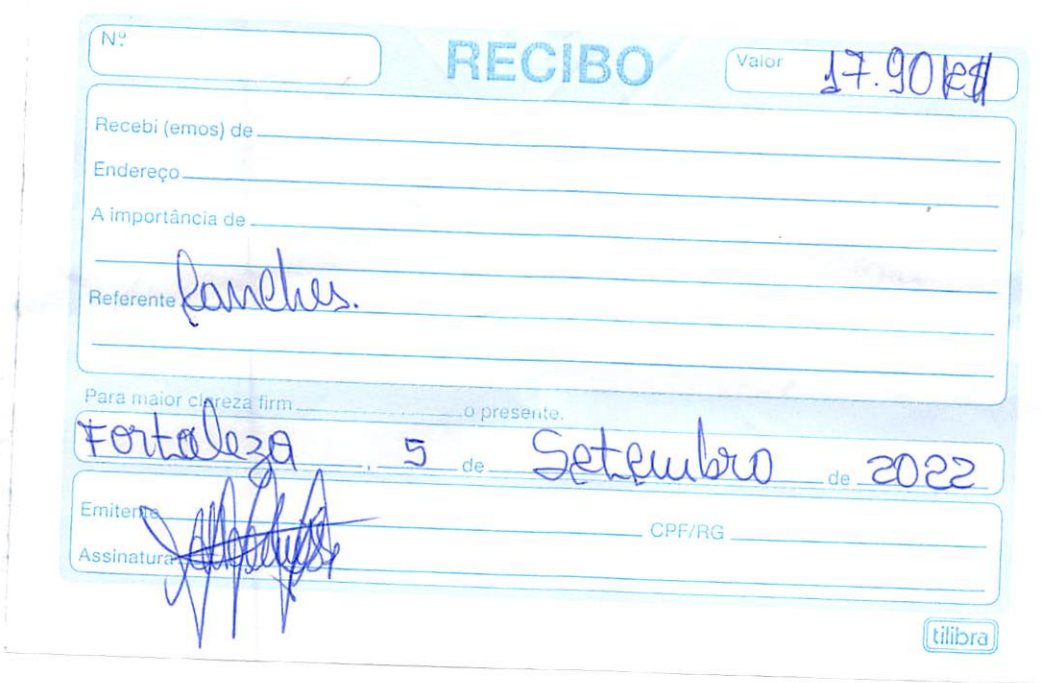 Nº RECIBO Valor 17.90 R$
Recebi (emos) de
Endereço
A importância de
Referente Lanches.
Para maior clareza firm o presente.
Fortaleza, 5 de Setembro de 2022
Emitente CPF/RG
Assinatura
tilibra